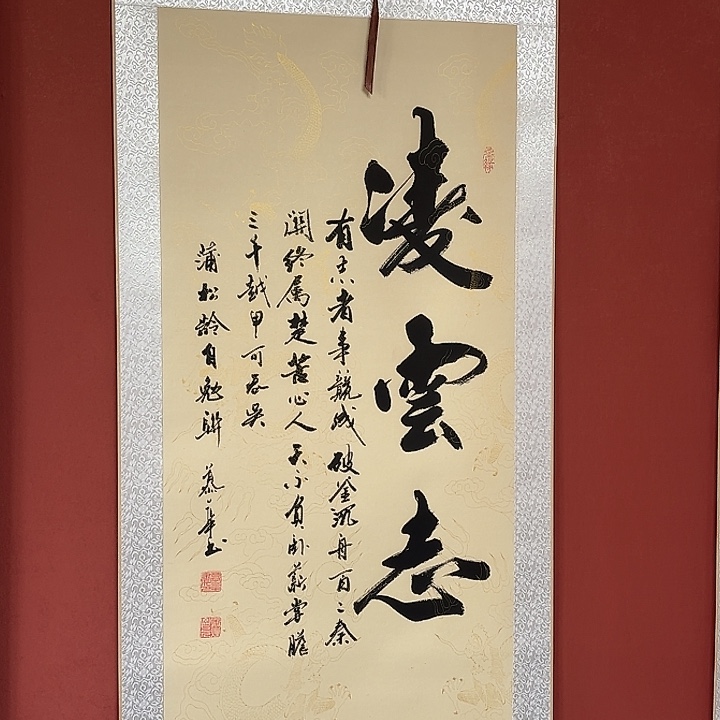 凌雲志
有志者事競成破釜沉舟百二秦
關終属楚苦心人天不負卧薪嘗膽
三千越甲可吞吴
蒲松龄自勉聯